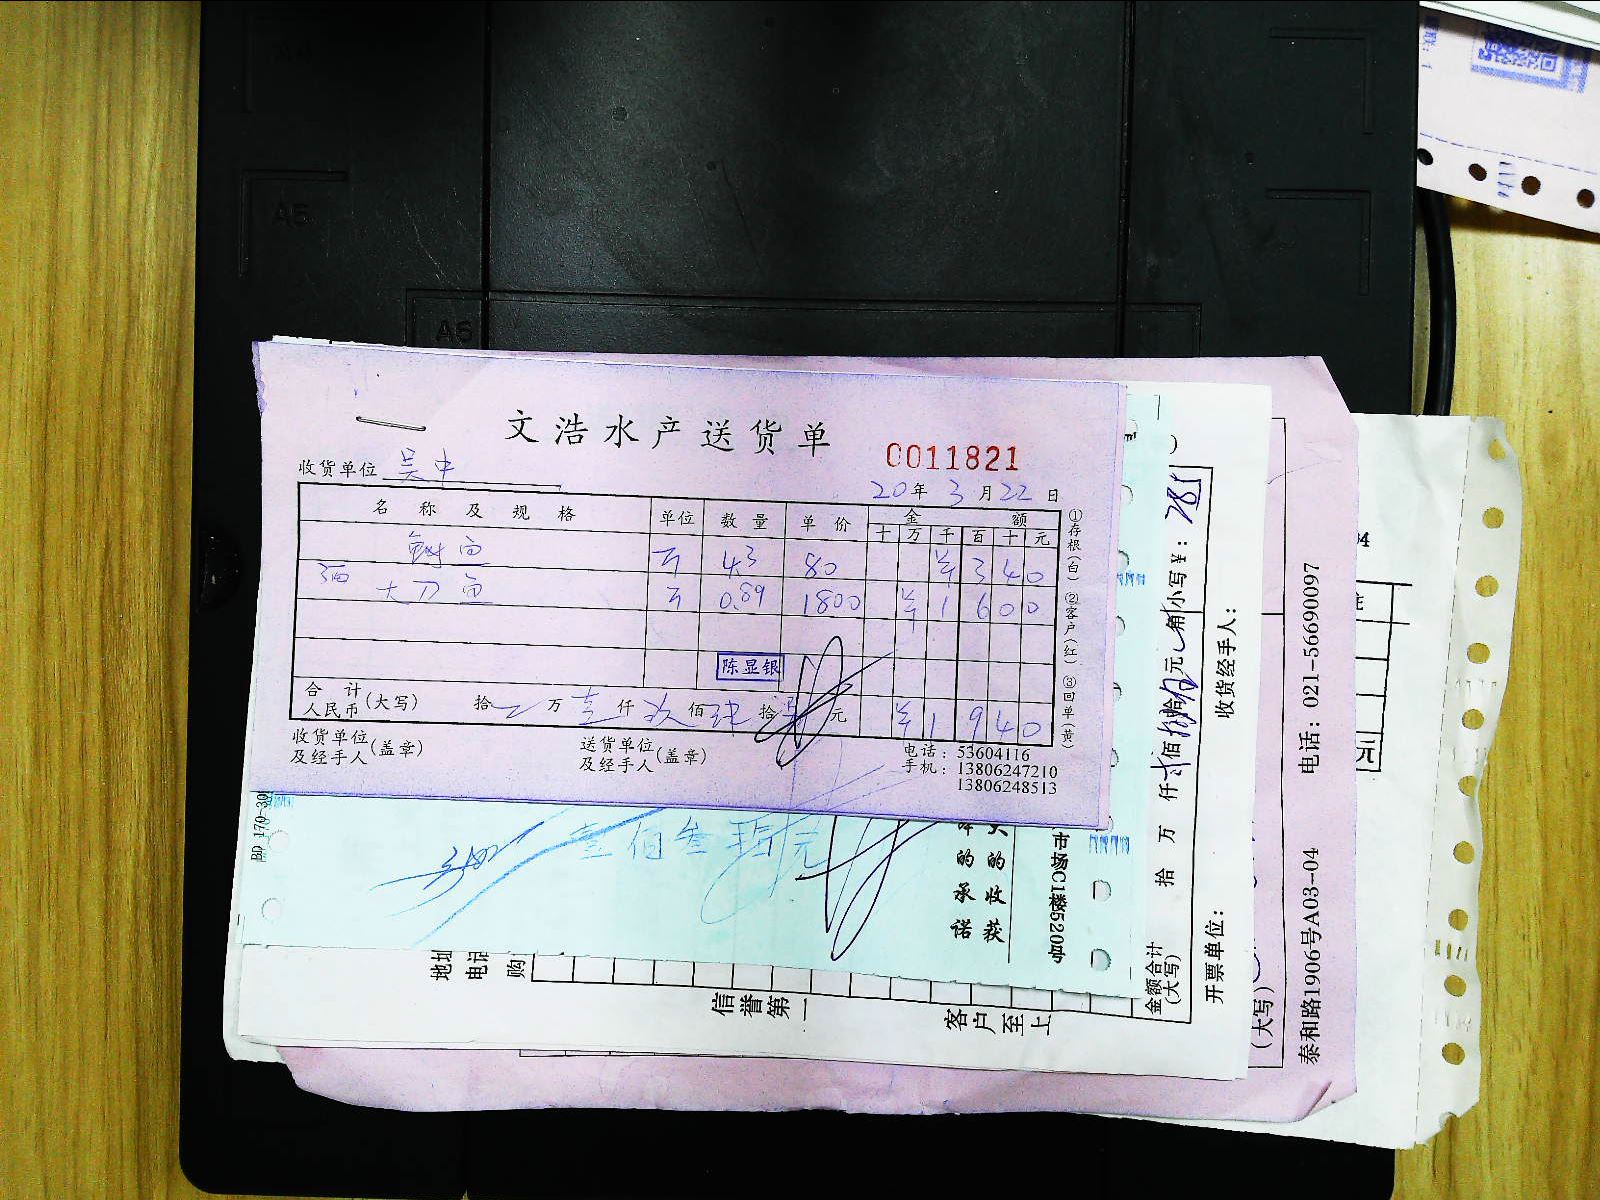 文浩水产送货单
0011821
收货单位 吴中
20年3月22日
名称及规格 单位 数量 单价 金额
十 万 千 百 十 元
鲥鱼 斤 4.3 80 ¥340
大刀鱼 斤 0.89 1800 ¥1600
陈显银
合计人民币(大写) 拾 万 壹仟玖佰肆拾零元 ¥1940
①存根(白) ②客户(红) ③回单(黄)
收货单位及经手人(盖章)
送货单位及经手人(盖章)
电话：53604116
手机：13806247210
13806248513
壹佰叁 元
的承诺
的收获
市场C1楼520号
地址
电话
购
信誉第一
客户至上
金额合计(大写) 拾 万 仟 佰 拾 元 角 小写¥：285
开票单位：
收货经手人：
(大写)
泰和路1906号A03-04 电话：021-56690097
元
A5
A5